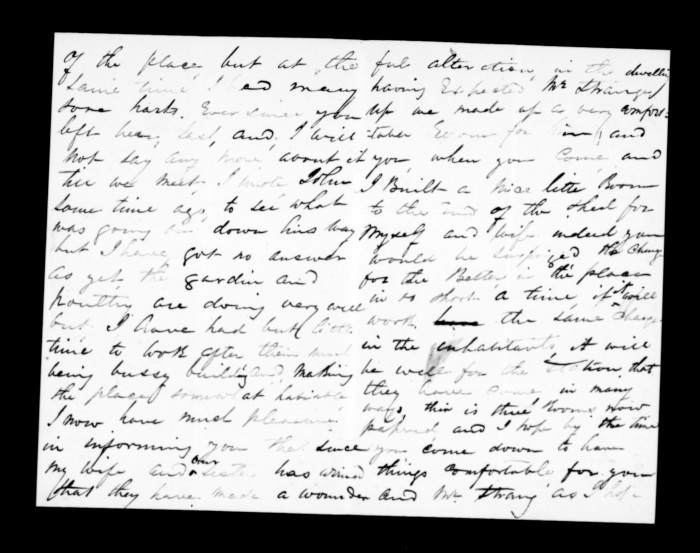 of the place but at the
same time I had many
sore harts. Ever since you
left hear last, and, I will
not say any more about it
till we meet I wrote John
some time ago, to see what
was going on down his way
but I have got no answer
as yet, the garden and
poultry are doing very well
but I have had but little
time to look after them much
being bussy building and making
the place somewhat habitable
I now have much pleasure
in informing you that since
my wife and our sister has arived
that they have made a wounder
ful alteration, in the dwelling
having Expected Mr Strange/
up we made up a very comfort-
able Room for him and
you, when you Come, and
I Built a Nice little Room
to the end of the shed for
Myself and Wife indeed you
would be surprized the Change
for the Better in the place
in so short a time, if it will
work the same Change
in the inhabitants, it will
be well for the Station, that
they have Come, in many
ways, this is three Rooms now
papered and I hope by the time
you come down to have
things comfortable for you
and Mr Strang as I hop